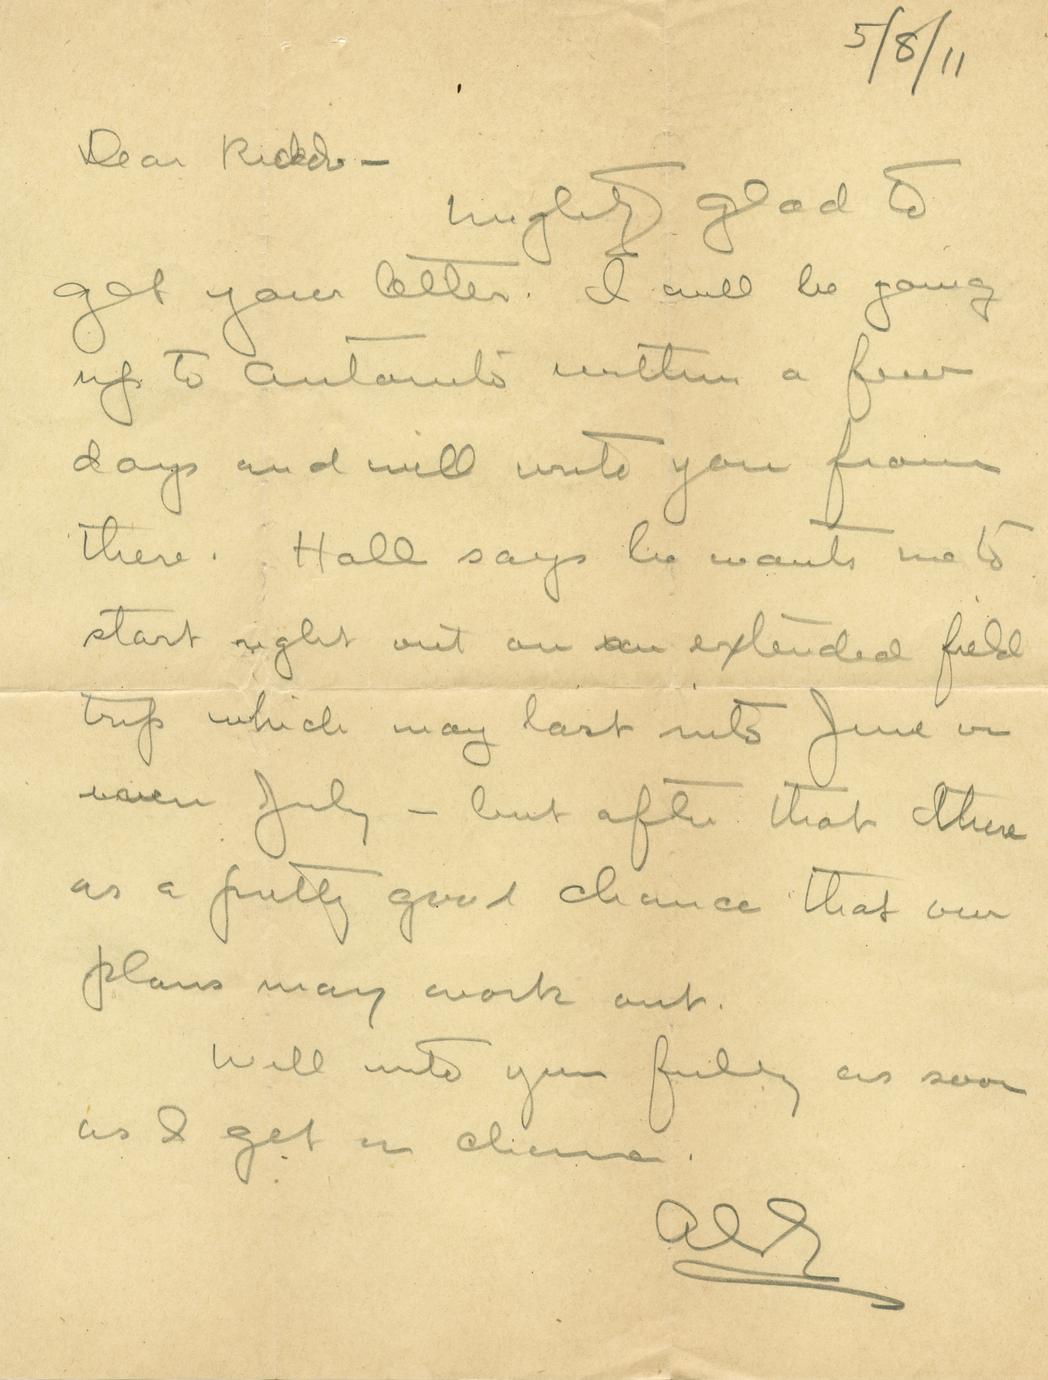 5/8/11
Dear
mighty glad to
get your letter. I will be going
up to Antonito within a few
days and will write you from
there. Hall says he wants me to
start right out on an extended field
trip which may last into June or
even July – but after that there
is a pretty good chance that our
plans may work out.
Will write you fully as soon
as I get a chance.